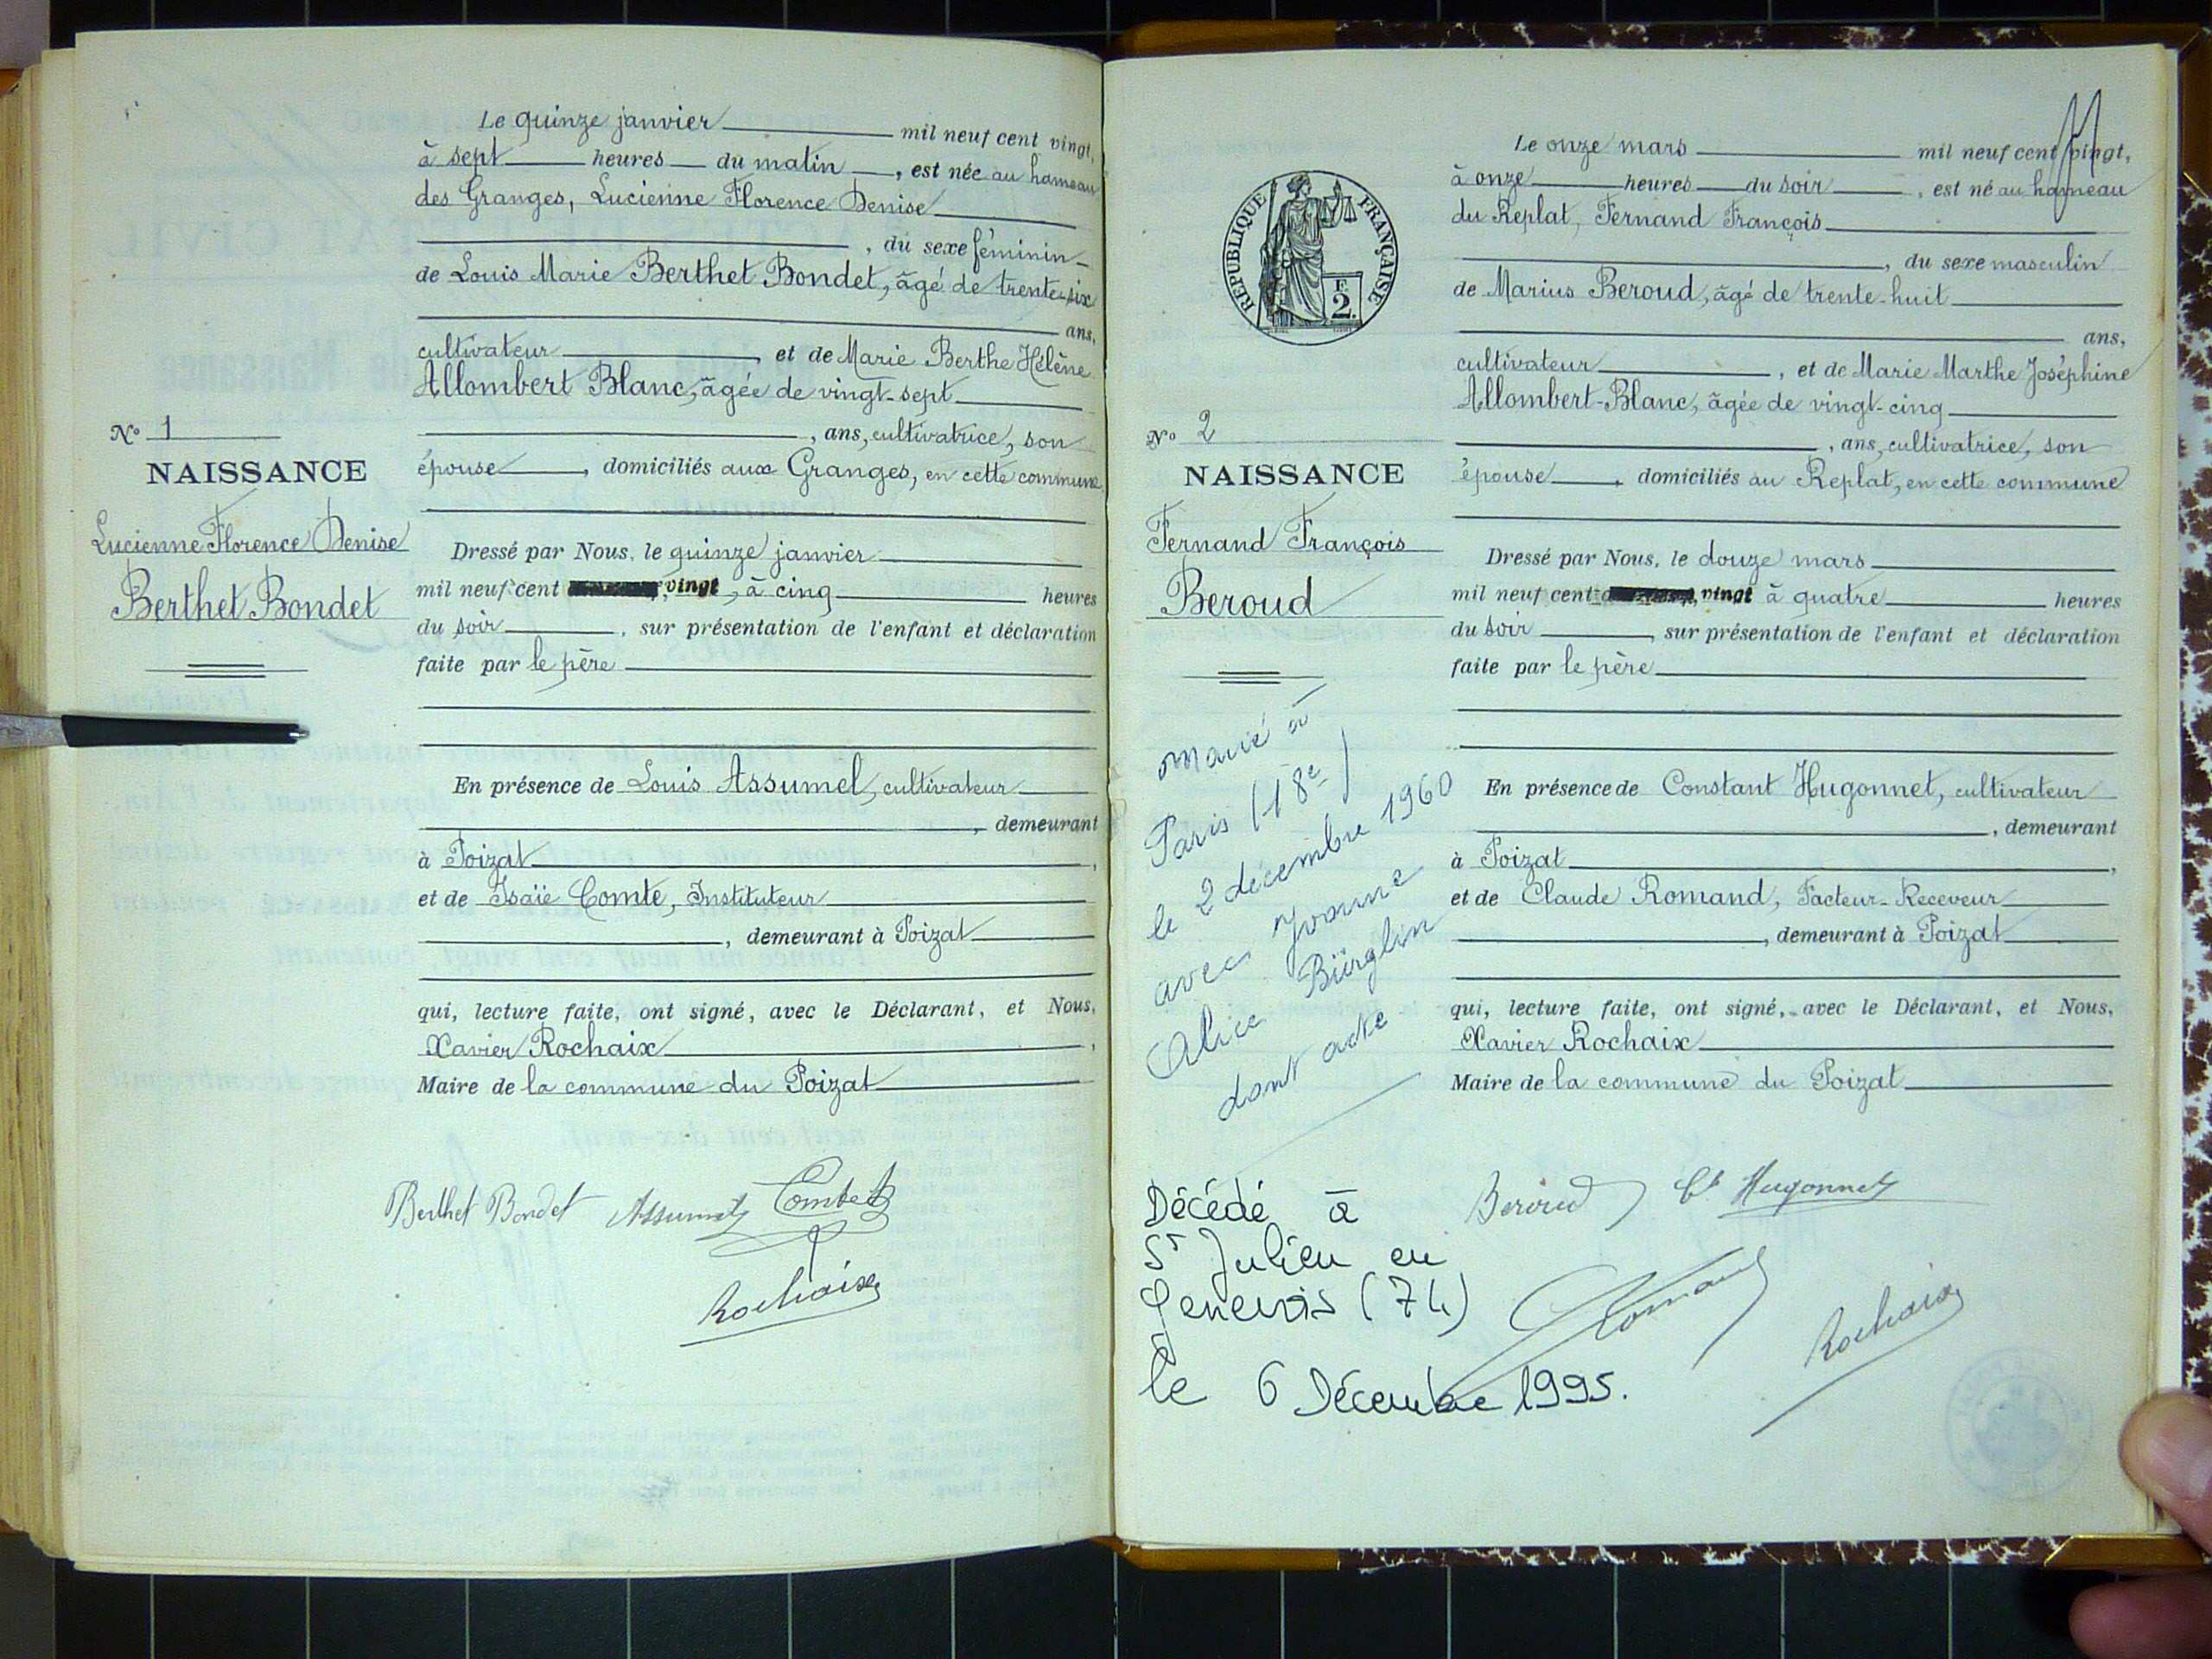 Le quinze janvier mil neuf cent vingt,
à sept heures du matin, est née au hameau
des Granges, Lucienne Florence Denise
, du sexe féminin
de Louis Marie Berthet Bondet, âgé de trente-six
ans,
cultivateur, et de Marie Berthe Hélène
Allombert Blanc, âgée de vingt-sept
, ans, cultivatrice, son
épouse, domiciliés aux Granges, en cette commune
Nº 1
NAISSANCE
Lucienne Florence Denise
Berthet Bondet
Dressé par Nous, le quinze janvier
mil neuf cent vingt, à cinq heures
du soir, sur présentation de l'enfant et déclaration
faite par le père
En présence de Louis Assumel, cultivateur
, demeurant
à Poizat,
et de Isaïe Comte, Instituteur
, demeurant à Poizat
qui, lecture faite, ont signé, avec le Déclarant, et Nous,
Xavier Rochaix,
Maire de la commune du Poizat
Berthet Bondet Assumel Comte
Rochaix
Le onze mars mil neuf cent vingt,
à onze heures du soir, est né au hameau
du Replat, Fernand François
, du sexe masculin
de Marius Beroud, âgé de trente-huit
ans,
cultivateur, et de Marie Marthe Joséphine
Allombert-Blanc, âgée de vingt-cinq
, ans, cultivatrice, son
épouse, domiciliés au Replat, en cette commune
RÉPUBLIQUE FRANÇAISE
F.
2.
Nº 2
NAISSANCE
Fernand François
Beroud
Dressé par Nous, le douze mars
mil neuf cent vingt à quatre heures
du soir, sur présentation de l'enfant et déclaration
faite par le père
En présence de Constant Hugonnet, cultivateur
, demeurant
à Poizat,
et de Claude Romand, Facteur-Receveur
, demeurant à Poizat
qui, lecture faite, ont signé, avec le Déclarant, et Nous,
Xavier Rochaix
Maire de la commune du Poizat
Marié à
Paris (18e)
le 2 décembre 1960
avec Yvonne
Alice Bürglin
dont acte
Beroud Ct Hugonnet
Romand
Rochaix
Décédé à
St Julien en
Genevois (74)
le 6 Décembre 1995.